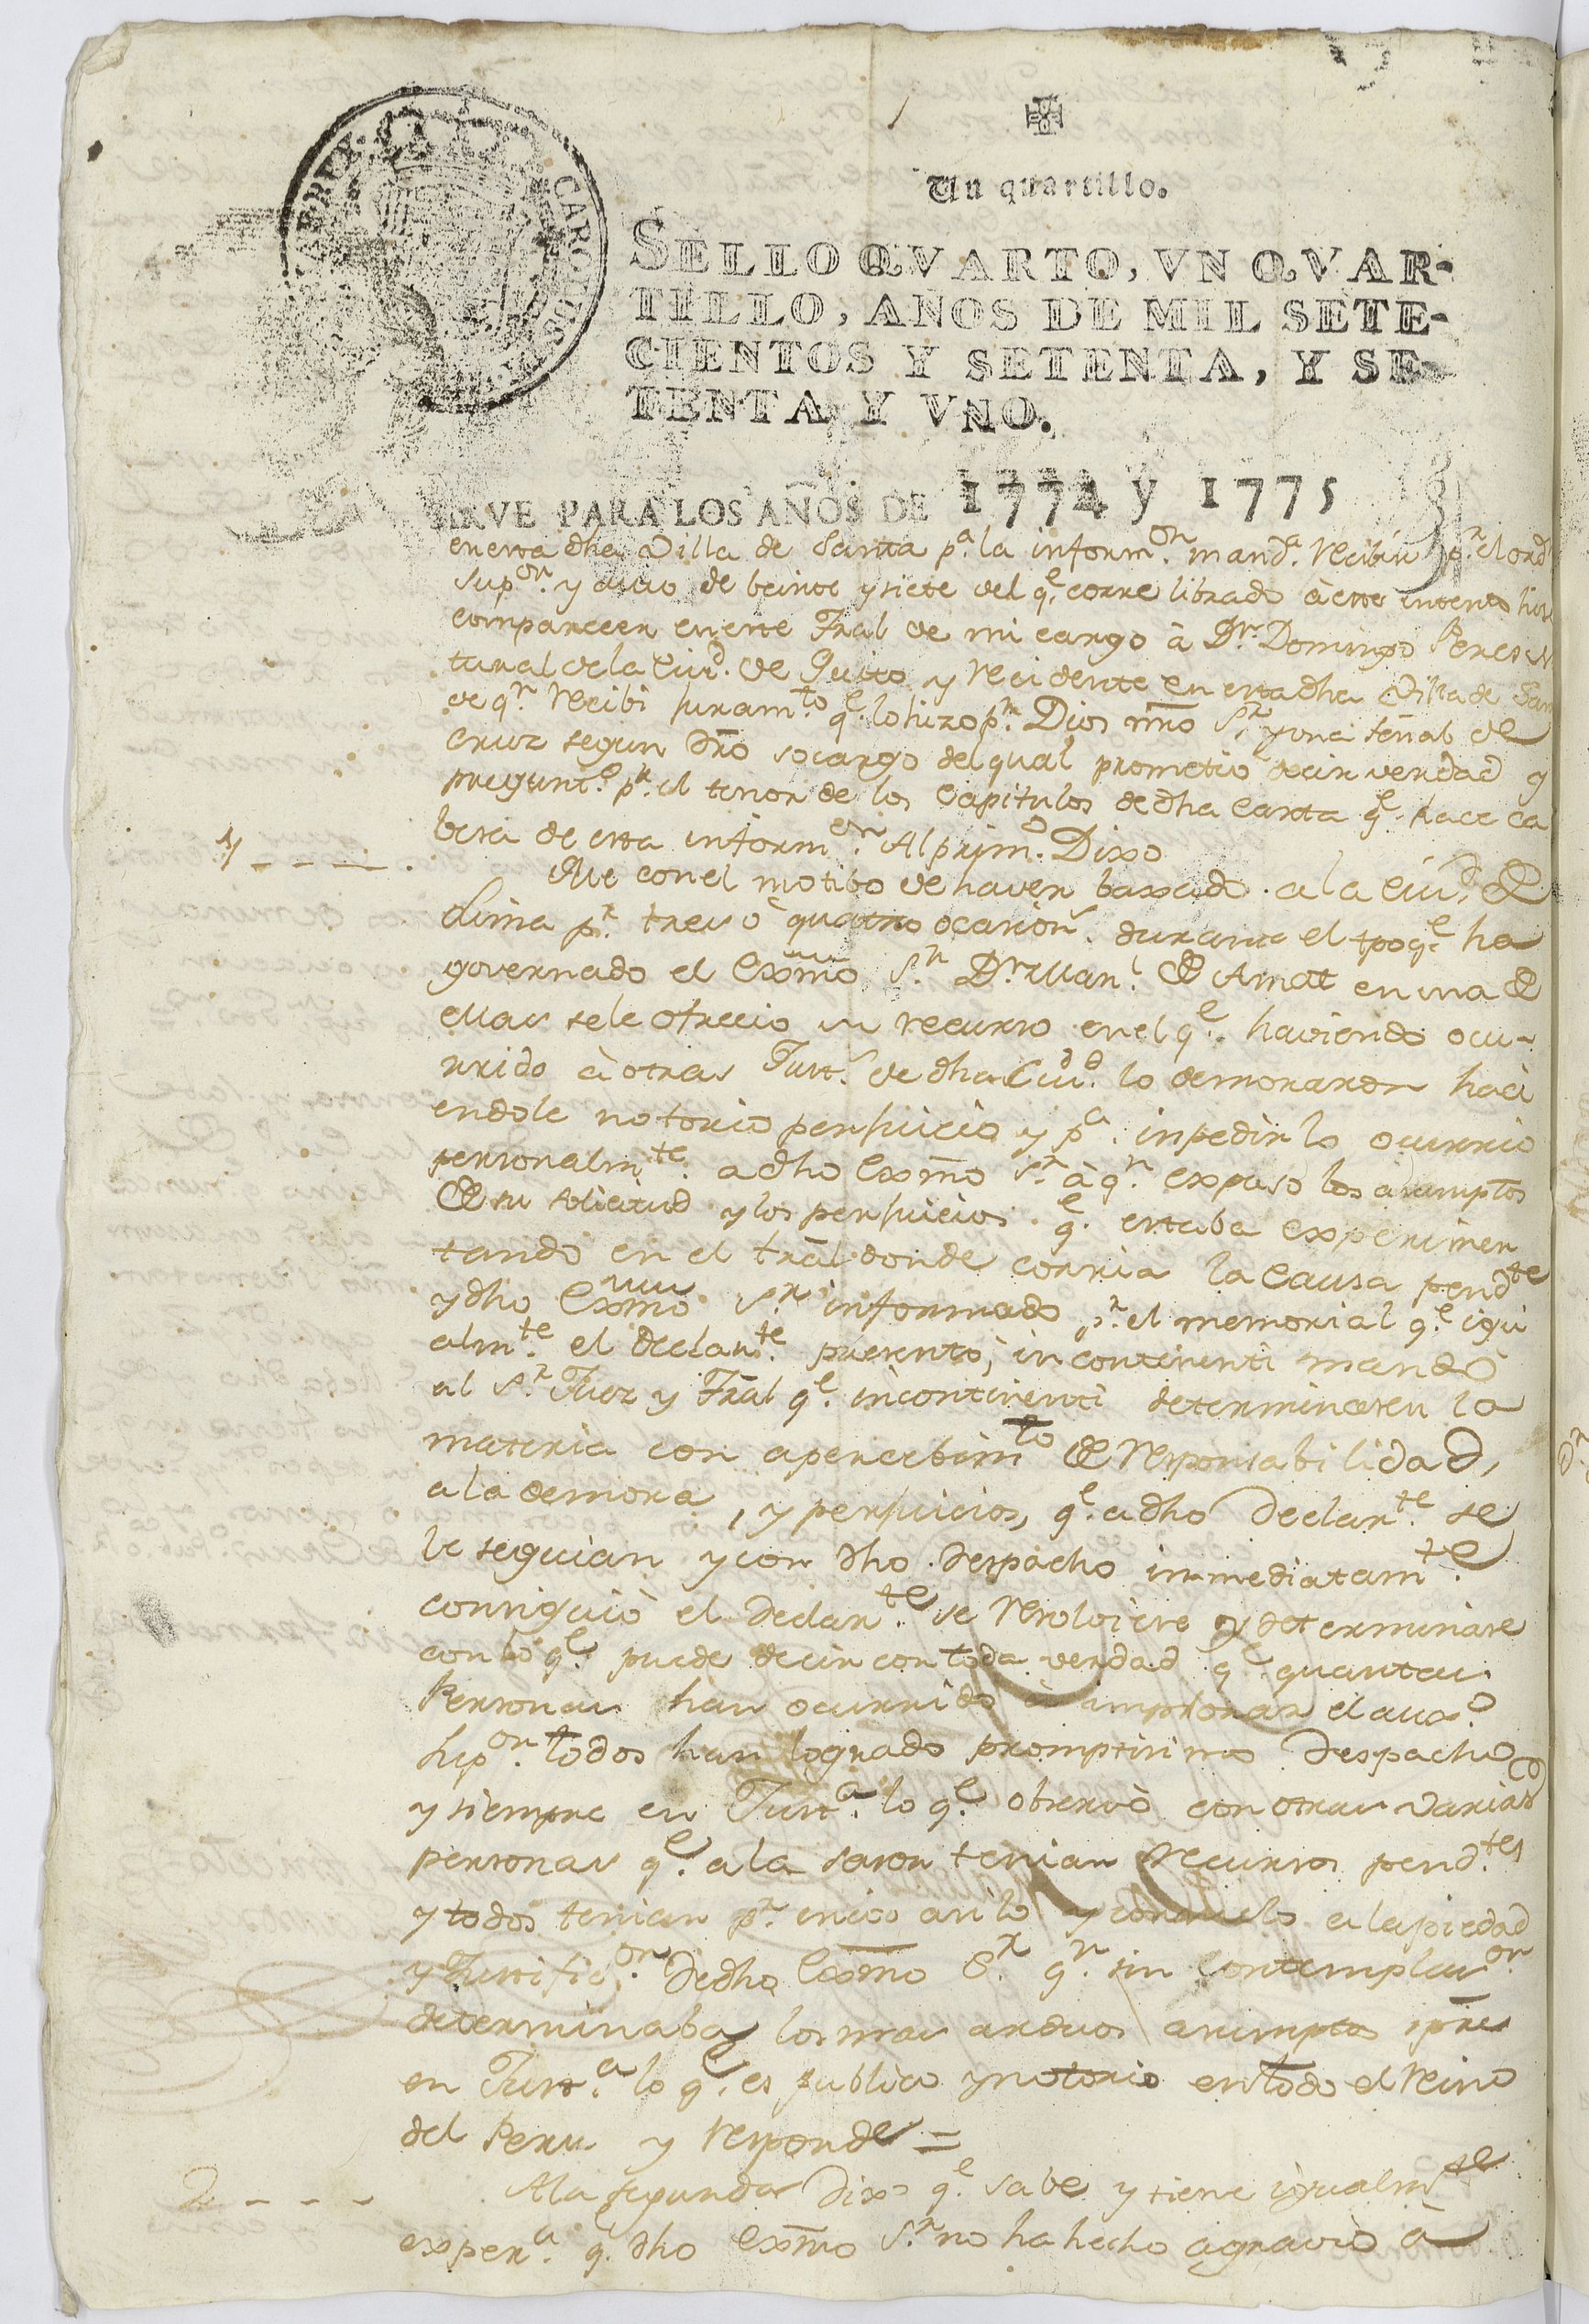 Un quartillo.
SELLO QVARTO, VN QVAR-
TILLO, AÑOS DE MIL SETE-
CIENTOS Y SETENTA, Y SE-
TENTA Y VNO.
CAROLUS
IRVE PARA LOS AÑOS DE 1774 y 1775
en esta dha Villa de Santa pa. la informon. mandà. recibir pr. el ord
Supor. y auto de beinte y siete del qe. corre librado à este intento hise
comparecer en este Tral de mi cargo à Dn. Domingo Peres
tural de la Ciud. de Quito y recidente en esta dha Villa de San
de qn. recibi juramto. qe. lo hizo pr. Dios nro Sr. y una señal de
Cruz segun dro so cargo del qual prometiò decir verdad y
pregunt.o pr. el tenor de los Capitulos de dha Carta qe. hace ca
besa de esta informon. Al primo. Dixo
1 - - - Que con el motibo de haver baxado a la Ciud. de
Lima pr. tres ò quatro ocasions. durante el tpo qe. ha
governado el Exmo Sr. Dn. Manl. de Amat en una de
ellas se le ofrecio un recurso en el qe. haviendo ocu-
rrido à otras Justs. de dha Ciud. lo demoraron haci
endole notorio perjuicio y pa. inpedirlo ocurrio
personalmte. a dho Exmo Sr. à qn. expuso los asumptos
de su solicitud y los perjuicios qe. estaba experimen
tando en el tral donde corria la causa pendte
y dho Exmo Sr. informado pr. el memorial qe. igu
almte. el declarte. presentò, incontinenti mandò
al Sr. Juez y Tral qe. incontinenti determinasen la
materia con apercebimto de responsabilidad,
a la demora, y perjuicios, qe. a dho Declarte. se
le seguian y con dho Despacho inmediatamte.
consiguiò el Declarte. se resolviese y determinase
con lo qe. puede decir con toda verdad qe. quantas
Personas han ocurrido à implorar el auxo.
supor. todos han logrado promptisimo Despacho
y siempre en Justa. lo qe. observò con otras varias
personas qe. a la sason tenian recursos pendtes.
y todos tenian pr. unico asilo y consuelo a la piedad
y Justificon. de dho Exmo Sr. qn. sin contemplacon.
determinaba los mas arduos asumptos spre
en Justa. lo qe. es publico y notorio en todo el reino
del Peru y responde =
2 - - - A la segunda Dixo qe. sabe y tiene igualmte
expera. qe. dho Exmo Sr. no ha hecho agravio à